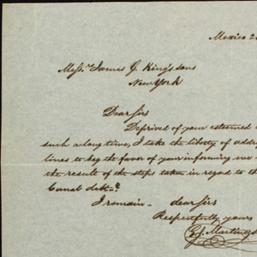 Mexico 2
Mess. James G. King's sons
New York
Dear Sirs
Deprived of your esteemed
such a long time, I take the liberty of
lines to beg the favor of your informing me
the result of the steps taken in regard to th
Canal debt.
I remain - dear Sirs
Respectfully yours